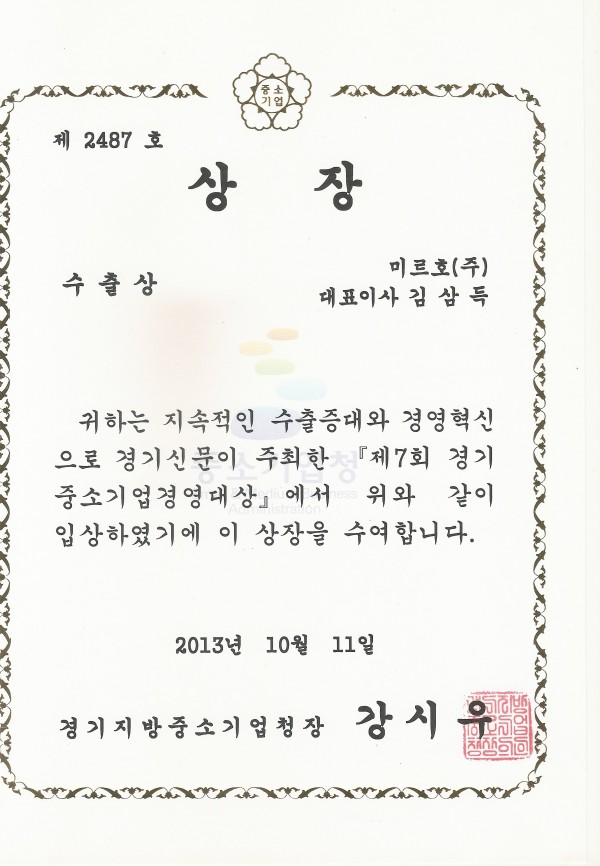 중소
기업
제 2487 호
상 장
수 출 상
미르호(주)
대표이사 김 삼 득
귀하는 지속적인 수출증대와 경영혁신
으로 경기신문이 주최한 『제7회 경기
중소기업경영대상』에서 위와 같이
입상하였기에 이 상장을 수여합니다.
중소기업청
Administration
2013년 10월 11일
경기지방중소기업청장 강 시 우